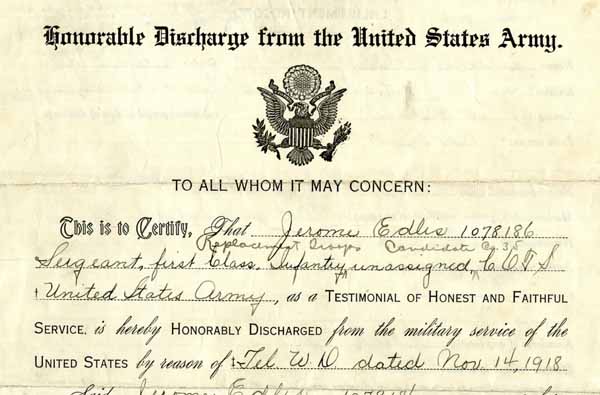 Honorable Discharge from the United States Army.
TO ALL WHOM IT MAY CONCERN:
This is to Certify, That Jerome Edlis 1078186
Replacement Troops Candidate Co. 35
Sergeant, first Class, Infantry unassigned, C O T S
United States Army, as a TESTIMONIAL OF HONEST AND FAITHFUL
SERVICE, is hereby HONORABLY DISCHARGED from the military service of the
UNITED STATES by reason of :-Tel. W. D dated Nov. 14, 1918
Said Jerome Edlis 107818